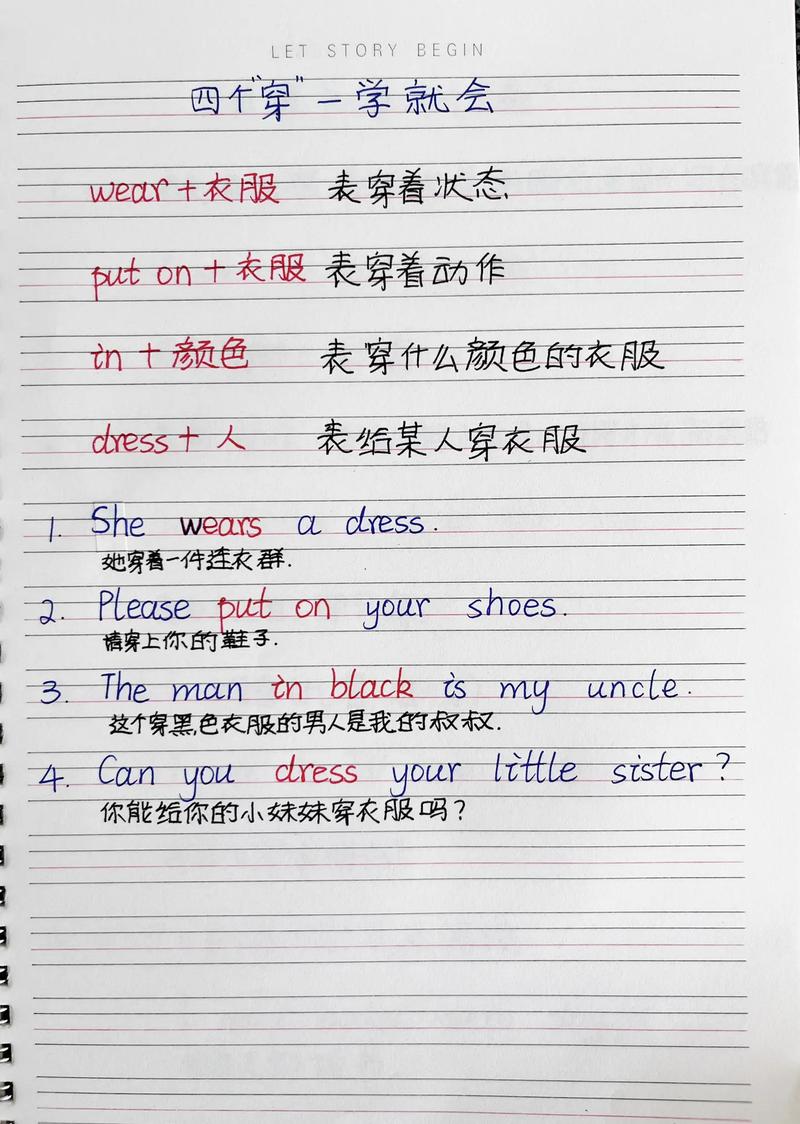 LET STORY BEGIN
四个“穿”一学就会
wear+衣服 表穿着状态
put on+衣服 表穿着动作
in+颜色 表穿什么颜色的衣服
dress+人 表给某人穿衣服
1. She wears a dress.
她穿着一件连衣群.
2. Please put on your shoes.
请穿上你的鞋子.
3. The man in black is my uncle.
这个穿黑色衣服的男人是我的叔叔.
4. Can you dress your little sister?
你能给你的小妹妹穿衣服吗?